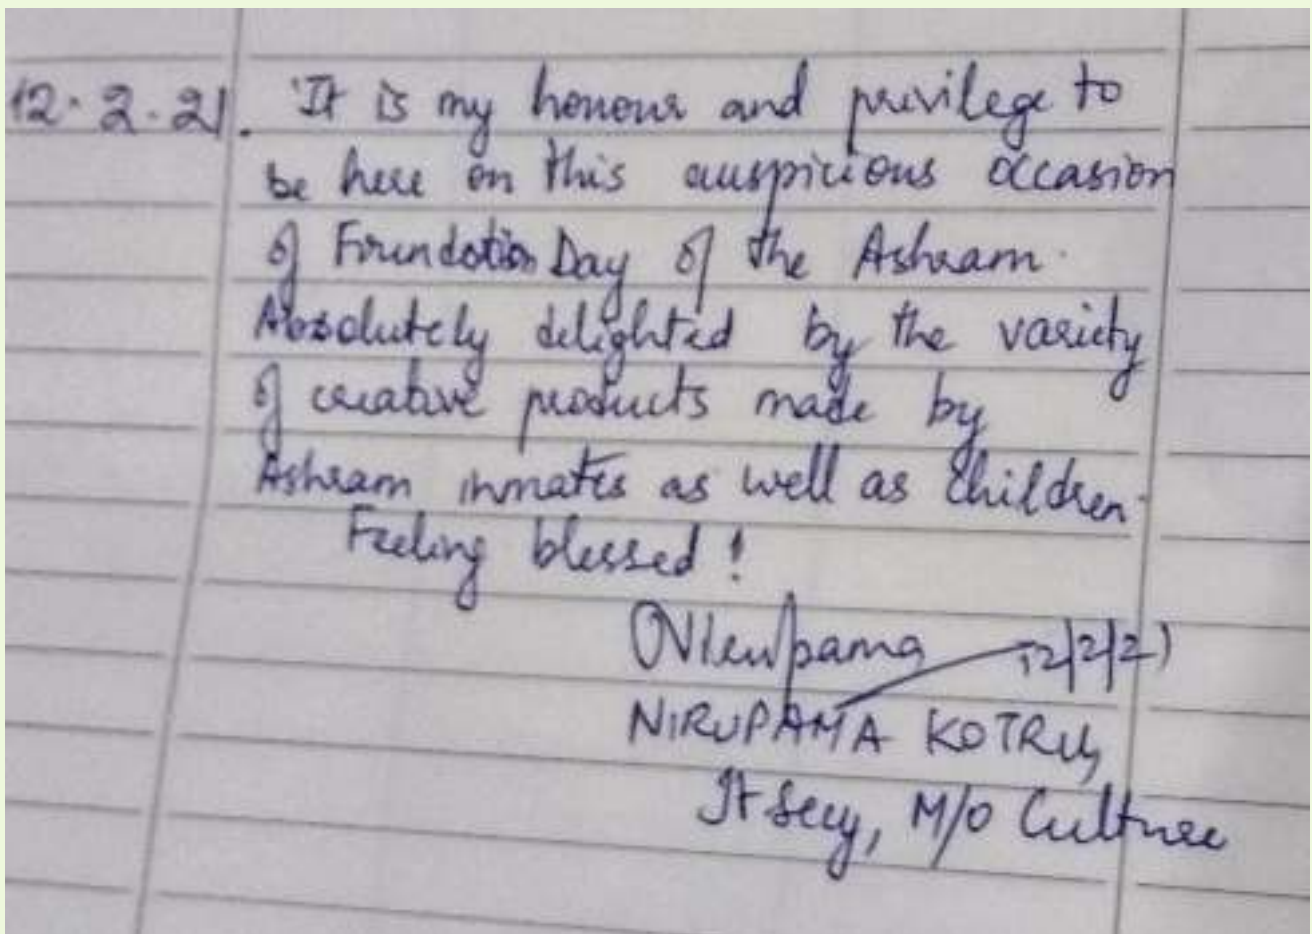 12.2.21. It is my honour and privilege to
be here on this auspicious occasion
of Foundation Day of the Ashram.
Absolutely delighted by the variety
of creative products made by
Ashram inmates as well as children.
Feeling blessed!
Nirupama 12/2/21
NIRUPAMA KOTRU,
Jt Secy, M/o Culture